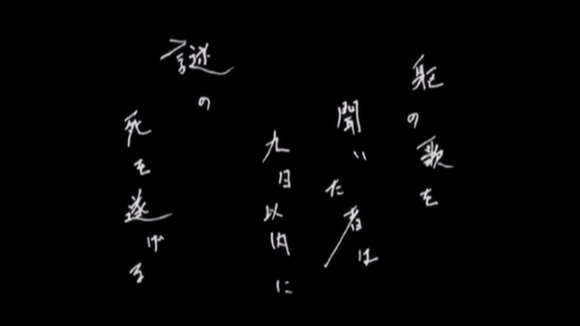 躯の歌を
聞いた者は
九日以内に
謎の
死を遂げる